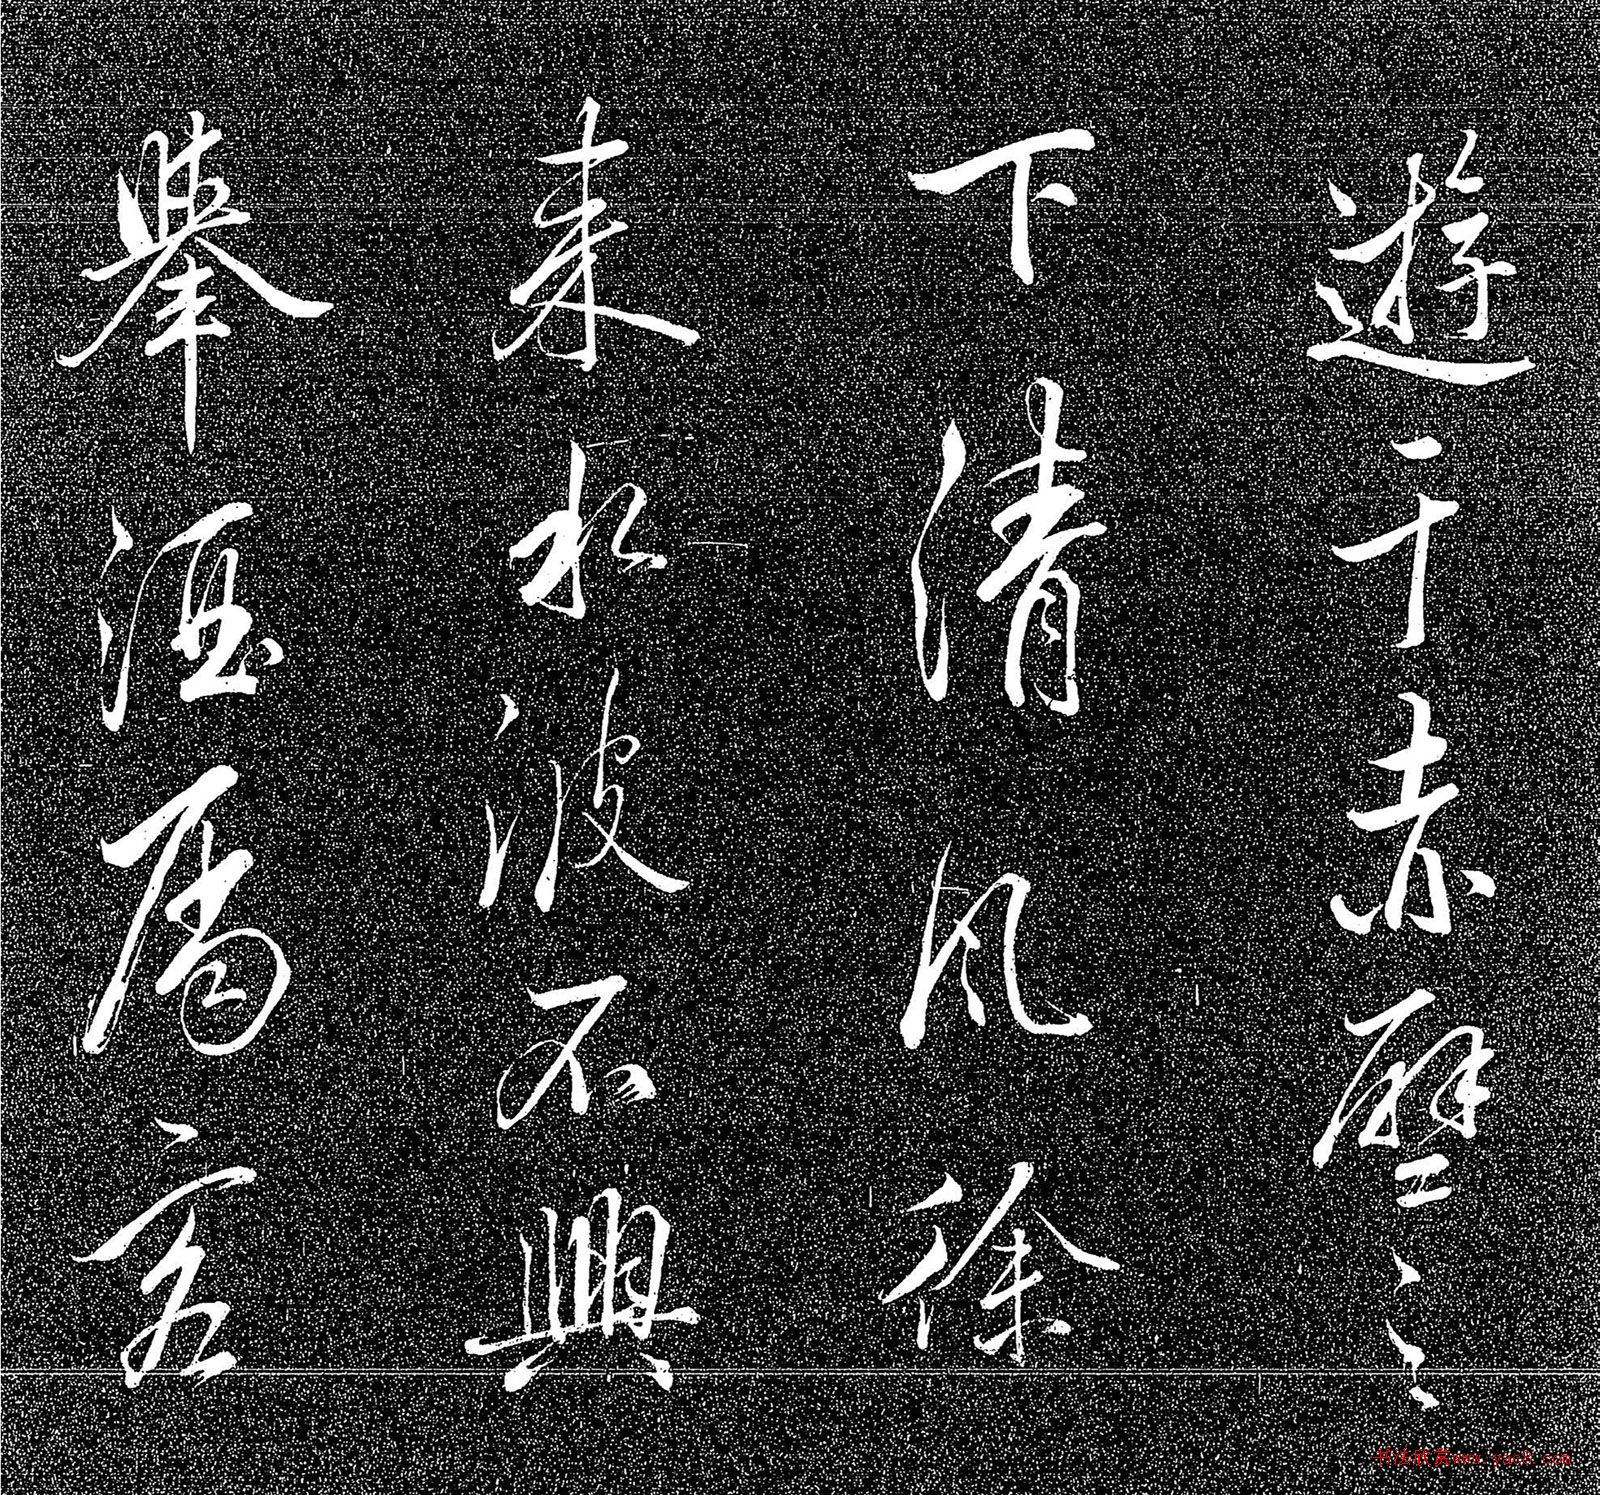 遊于赤壁之
下清風徐
来水波不興
舉酒屬客
书法欣赏www.yac8.com